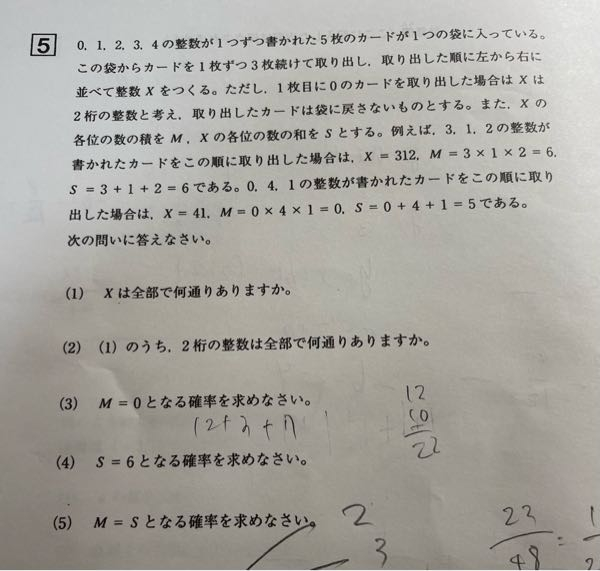 5 0, 1, 2, 3, 4の整数が1つずつ書かれた5枚のカードが1つの袋に入っている。
この袋からカードを1枚ずつ3枚続けて取り出し, 取り出した順に左から右に
並べて整数Xをつくる。ただし, 1枚目に0のカードを取り出した場合はXは
2桁の整数と考え, 取り出したカードは袋に戻さないものとする。また, Xの
各位の数の積をM, Xの各位の数の和をSとする。例えば, 3, 1, 2の整数が
書かれたカードをこの順に取り出した場合は, X = 312, M = 3 × 1 × 2 = 6,
S = 3 + 1 + 2 = 6である。0, 4, 1の整数が書かれたカードをこの順に取り
出した場合は, X = 41, M = 0 × 4 × 1 = 0, S = 0 + 4 + 1 = 5である。
次の問いに答えなさい。
(1) Xは全部で何通りありますか。
(2) (1)のうち, 2桁の整数は全部で何通りありますか。
(3) M = 0となる確率を求めなさい。
12
10
22
(4) S = 6となる確率を求めなさい。
(5) M = Sとなる確率を求めなさい。
2
3
23
48
=